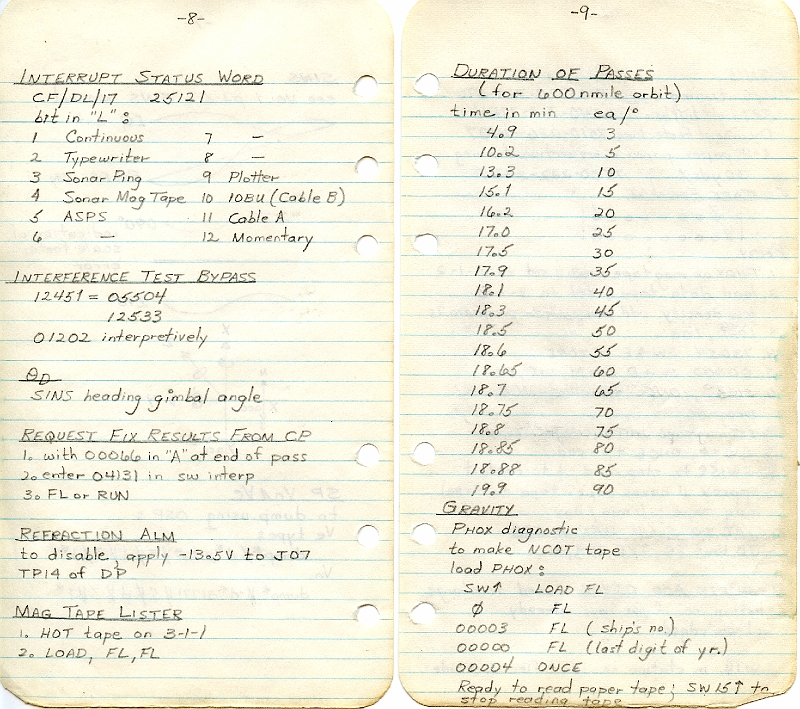 -8-
INTERRUPT STATUS WORD
CF/DL/17 25121
bit in "L":
1 Continuous 7 -
2 Typewriter 8 -
3 Sonar Ping 9 Plotter
4 Sonar Mag Tape 10 10BU (Cable B)
5 ASPS 11 Cable A
6 - 12 Momentary
INTERFERENCE TEST BYPASS
12451 = 05504
12533
01202 interpretively
ΘD
SINS heading gimbal angle
REQUEST FIX RESULTS FROM CP
1. with 00066 in "A" at end of pass
2. enter 04131 in sw interp
3. FL or RUN
REFRACTION ALM
to disable, apply -13.5V to J07
TP14 of DP
MAG TAPE LISTER
1. HOT tape on 3-1-1
2. LOAD, FL, FL
-9-
DURATION OF PASSES
(for 600 nmile orbit)
time in min ea/°
4.9 3
10.2 5
13.3 10
15.1 15
16.2 20
17.0 25
17.5 30
17.9 35
18.1 40
18.3 45
18.5 50
18.6 55
18.65 60
18.7 65
18.75 70
18.8 75
18.85 80
18.88 85
19.9 90
GRAVITY
PHOX diagnostic
to make NCOT tape
load PHOX:
SW↑ LOAD FL
Ø FL
00003 FL (ship's no.)
00000 FL (last digit of yr.)
00004 ONCE
Ready to read paper tape; SW15↑ to
stop reading tape